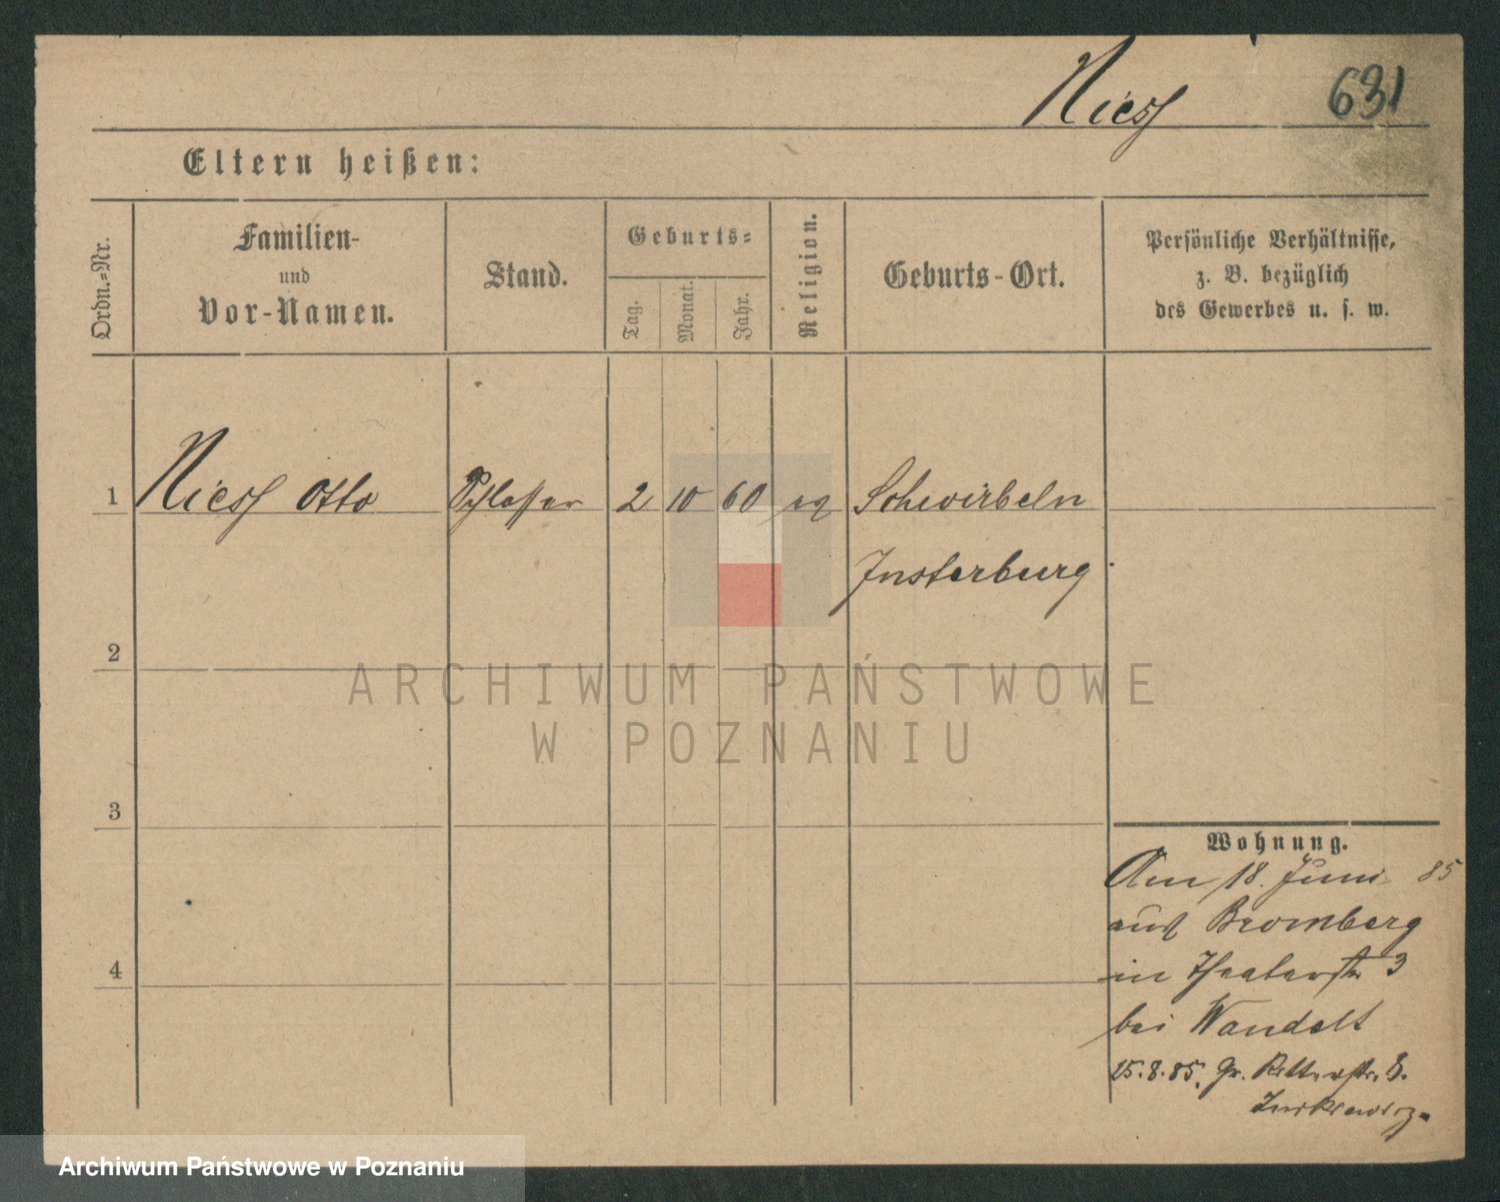 Niess 631
Eltern heißen:
Ordn.=Nr.
Familien-
und
Vor-Namen.
Stand.
Geburts=
Tag.
Monat.
Jahr.
Religion.
Geburts-Ort.
Persönliche Verhältnisse,
z. B. bezüglich
des Gewerbes u. s. w.
1 Niess Otto Schlosser 2 10 60 ev Schwirbeln
Insterburg
2
3
4
Wohnung.
Am 18. Juni 85
aus Bromberg
in Theaterstr 3
bei Wandelt
25.8.85. Gr. Ritterstr. 8.
ARCHIWUM PAŃSTWOWE
W POZNANIU
Archiwum Państwowe w Poznaniu